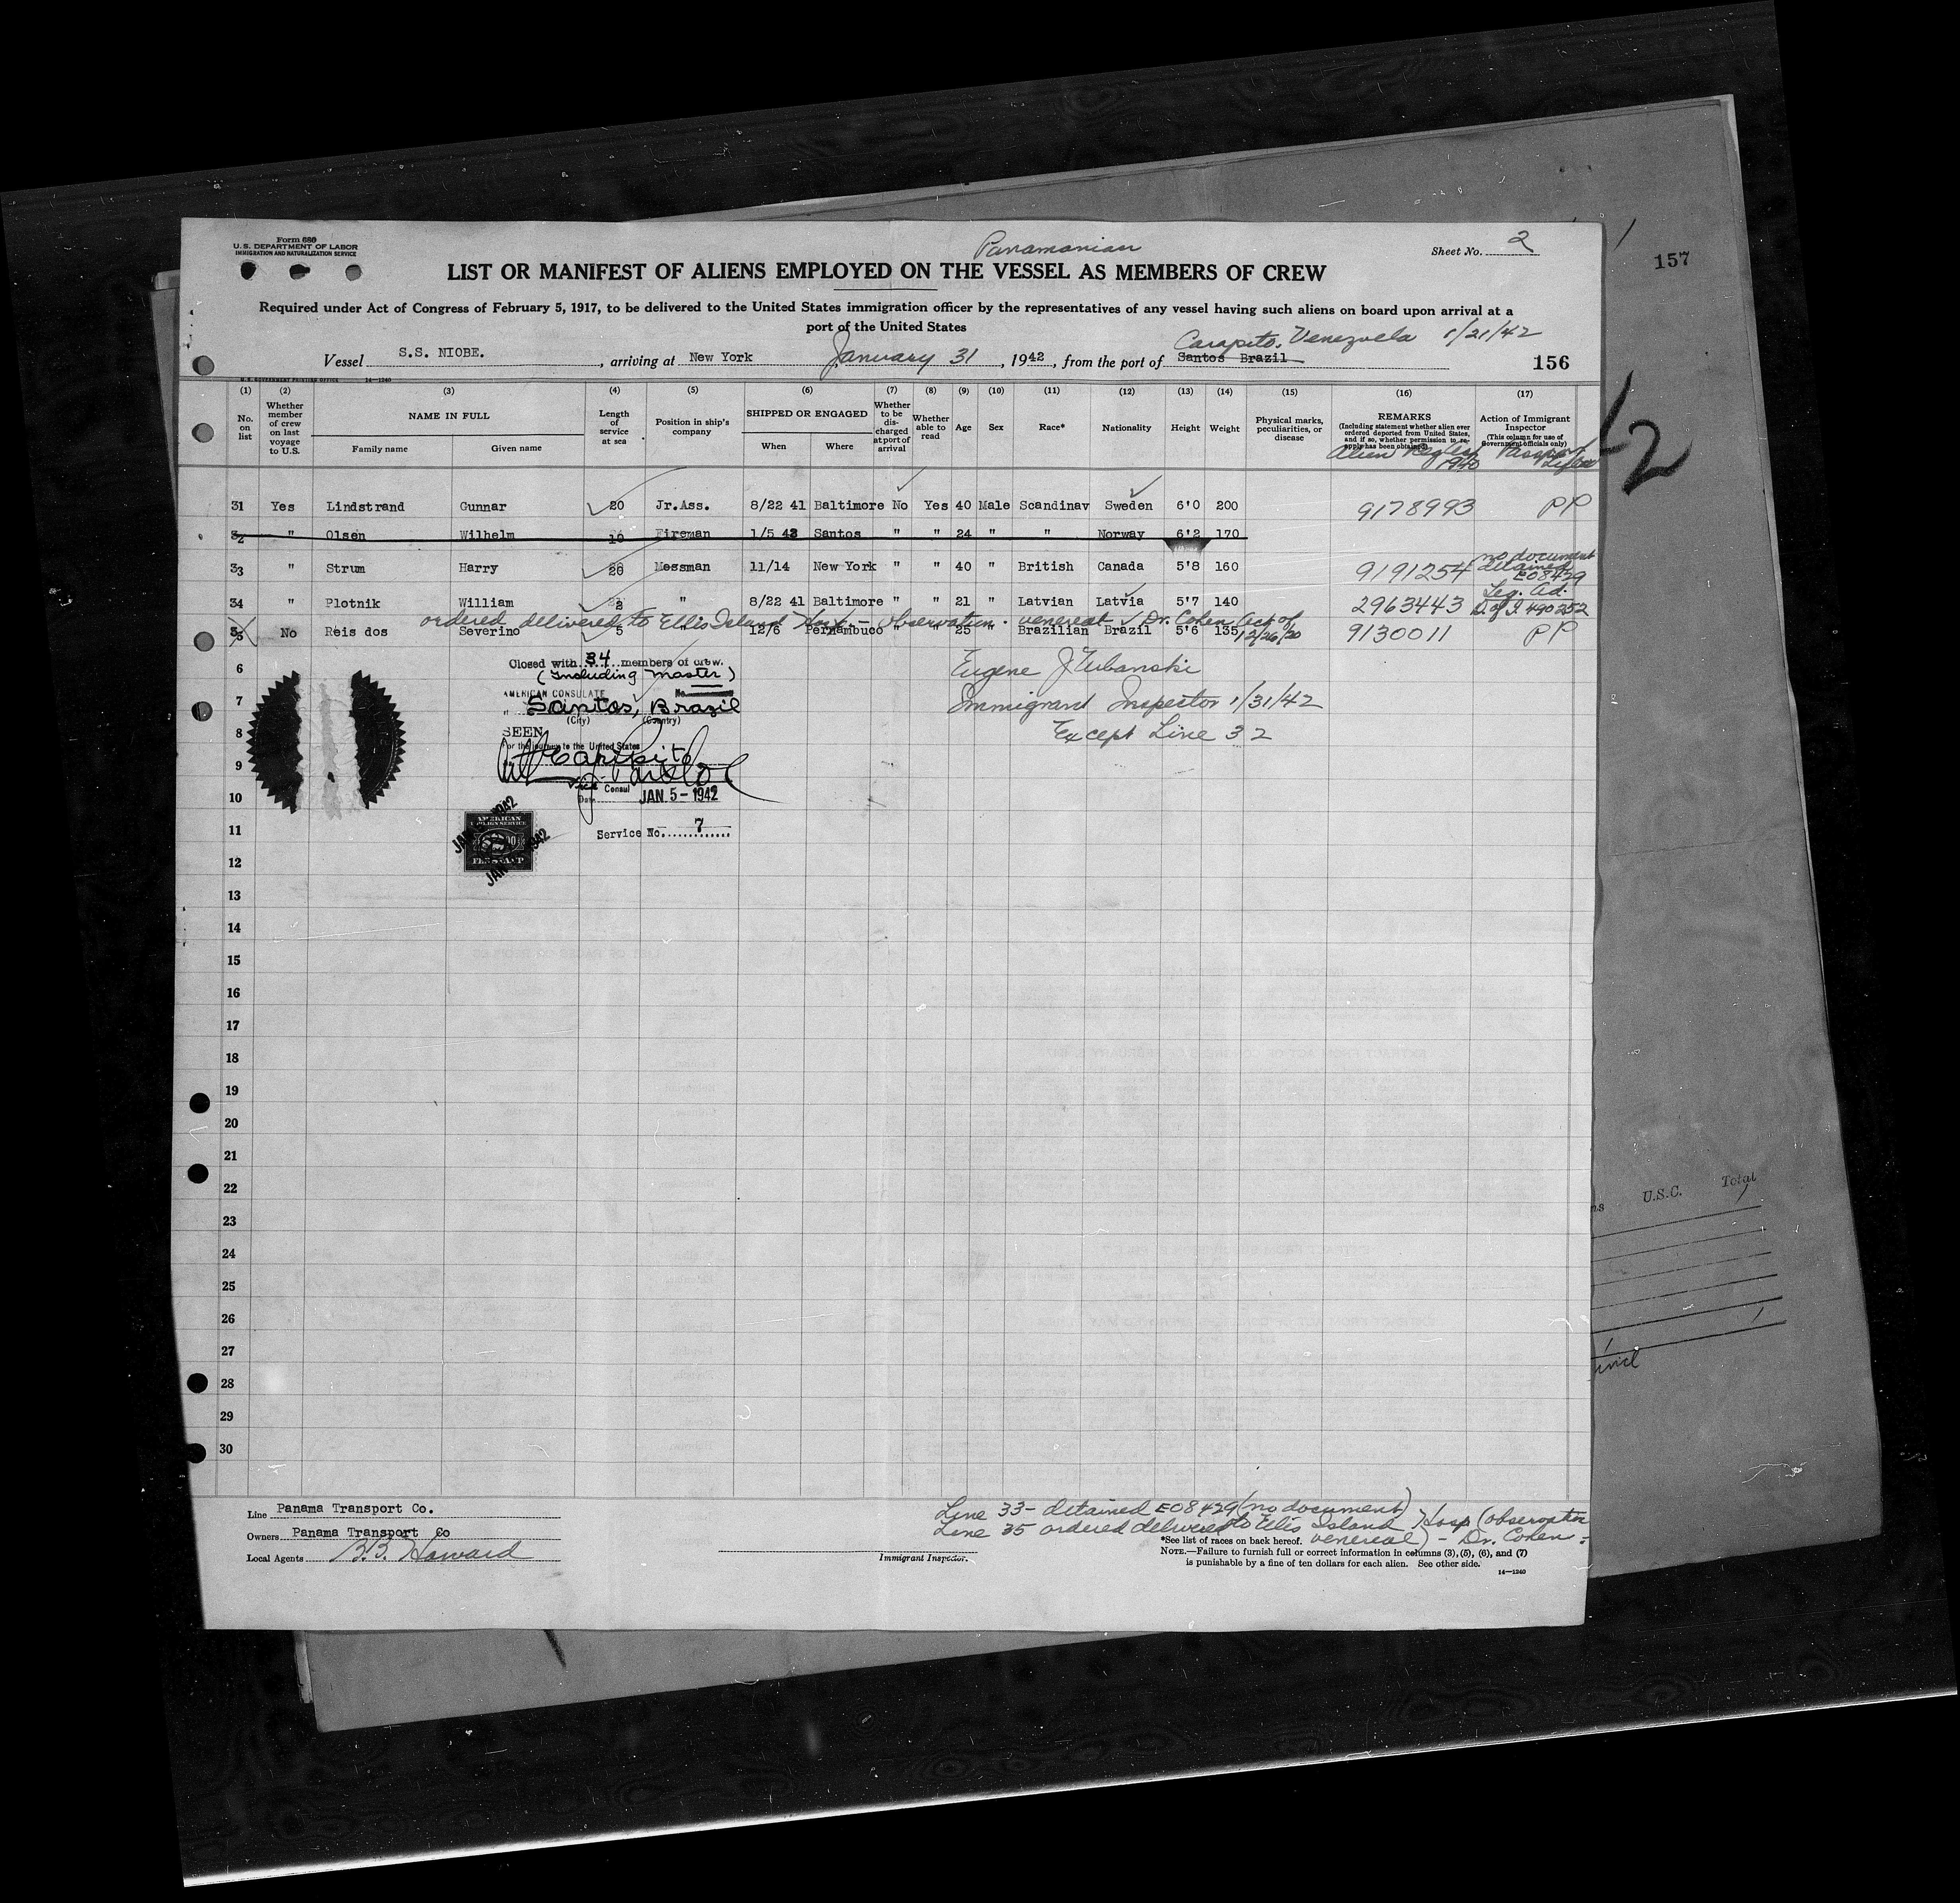 Form 680
U. S. DEPARTMENT OF LABOR
IMMIGRATION AND NATURALIZATION SERVICE
Panamanian
Sheet No. 2
157
LIST OR MANIFEST OF ALIENS EMPLOYED ON THE VESSEL AS MEMBERS OF CREW
Required under Act of Congress of February 5, 1917, to be delivered to the United States immigration officer by the representatives of any vessel having such aliens on board upon arrival at a
port of the United States
Carapito, Venezuela 1/21/42
Vessel S.S. NIOBE., arriving at New York January 31, 1942, from the port of Santos Brazil
156
U. S. GOVERNMENT PRINTING OFFICE 14—1240
(1) (2) (3) (4) (5) (6) (7) (8) (9) (10) (11) (12) (13) (14) (15) (16) (17)
No. on list Whether member of crew on last voyage to U.S. NAME IN FULL Family name Given name Length of service at sea Position in ship's company SHIPPED OR ENGAGED When Where Whether to be discharged at port of arrival Whether able to read Age Sex Race* Nationality Height Weight Physical marks, peculiarities, or disease REMARKS (Including statement whether alien ever ordered deported from United States, and if so, whether permission to reapply has been obtained) Action of Immigrant Inspector (This column for use of Government officials only)
Alien 1940
12
31 Yes Lindstrand Gunnar 20 Jr.Ass. 8/22 41 Baltimore No Yes 40 Male Scandinav Sweden 6'0 200 9178993 PP
32 " Olsen Wilhelm 10 Fireman 1/5 42 Santos " " 24 " " Norway 6'2 170
no document
detained
E08429
33 " Strum Harry 20 Messman 11/14 New York " " 40 " British Canada 5'8 160 9191254
Leg. Ad.
34 " Plotnik William 2 " 8/22 41 Baltimore " " 21 " Latvian Latvia 5'7 140 2963443 D. of I. 490352
ordered delivered to Ellis Island Hosp. - observation. venereal Dr. Cohen Act of 12/26/20
35 No Reis dos Severino 5 " 12/6 Pernambuco " " 25 " Brazilian Brazil 5'6 135 9130011 PP
6
Closed with 34 members of crew.
(Including Master)
Eugene J Urbanski
7
AMERICAN CONSULATE No.
Santos, Brazil
(City) (Country)
Immigrant Inspector 1/31/42
8
SEEN
For the journey to the United States
Except Line 32
9
Caripito
Vice Consul
10
Date JAN 5 - 1942
11
AMERICAN
FOREIGN SERVICE
FEE STAMP
Service No. 7
12
13
14
15
16
17
18
19
20
21
22
23
24
25
26
27
28
29
30
U.S.C. Total
Line Panama Transport Co.
Owners Panama Transport Co
Local Agents B.B. Howard
Immigrant Inspector.
Line 33- detained E08429 (no document)
Line 35 ordered delivered to Ellis Island Hosp (observation
venereal) - Dr. Cohen
*See list of races on back hereof.
NOTE.—Failure to furnish full or correct information in columns (3), (5), (6), and (7)
is punishable by a fine of ten dollars for each alien. See other side.
14—1240